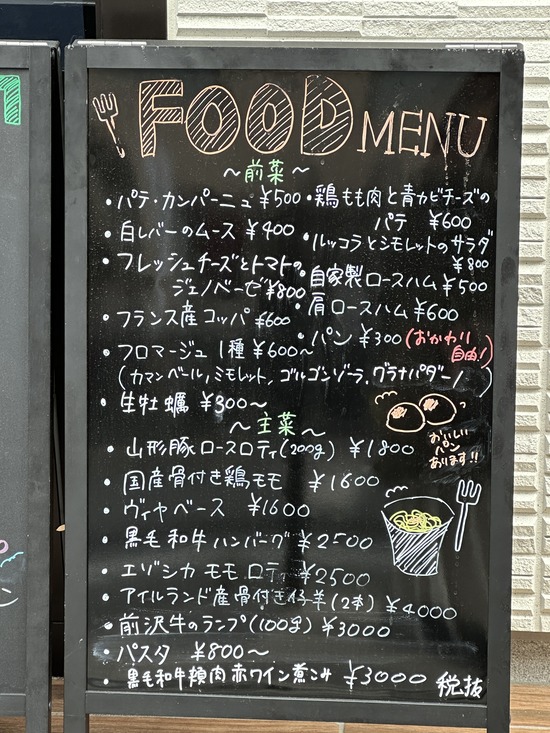 FOOD MENU
～前菜～
・パテ・カンパーニュ ¥500
・白レバーのムース ¥400
・フレッシュチーズとトマトの
ジェノベーゼ ¥800
・フランス産 コッパ ¥600
・フロマージュ 1種 ¥600～
(カマンベール, ミモレット, ゴルゴンゾーラ, グラナパダーノ)
・生牡蠣 ¥300～
・鶏もも肉と青カビチーズの
パテ ¥600
・ルッコラとシモレットのサラダ
¥800
・自家製ロースハム ¥500
・肩ロースハム ¥600
・パン ¥300 (おかわり
自由!)
～主菜～
・山形豚ロースロティ(200g) ¥1800
・国産骨付き鶏モモ ¥1600
・ヴィヤベース ¥1600
・黒毛和牛ハンバーグ ¥2500
・エゾシカ モモ ロティ ¥2500
・アイルランド産骨付き仔羊(2本) ¥4000
・前沢牛のランプ(100g) ¥3000
・パスタ ¥800～
・黒毛和牛頬肉赤ワイン煮こみ ¥3000
税抜
おいしい
パン
あります!!